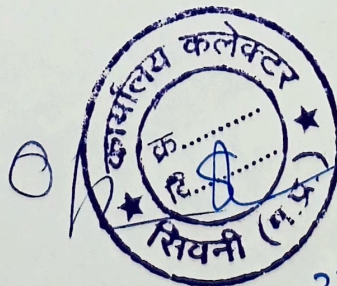 कार्यालय कलेक्टर
क्र............
दि............
सिवनी (म.प्र.)